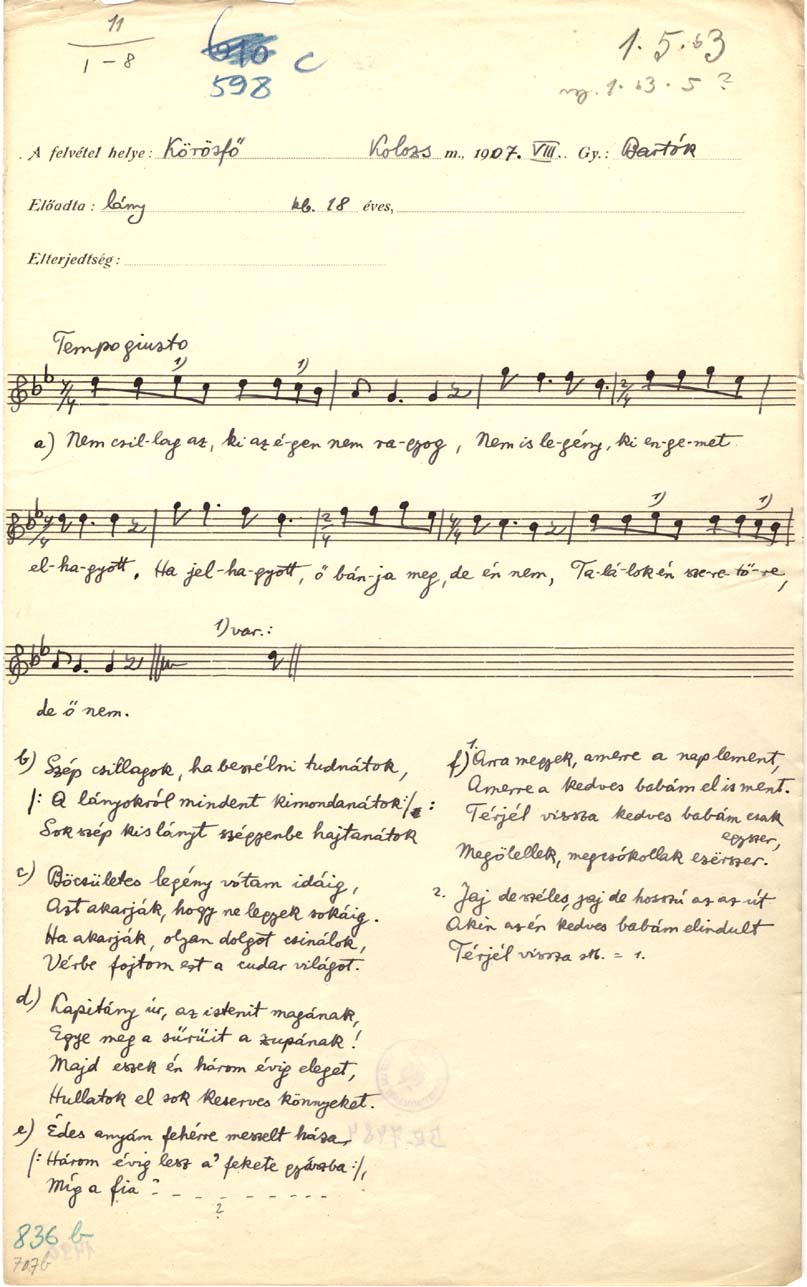 11
1-8
610 c
598
1.5.63
1.63.5?
A felvétel helye: Körösfő Kolozs m., 1907. VIII. Gy.: Bartók
Előadta: lány kb. 18 éves,
Elterjedtség:
Tempo giusto
1) 1)
a) Nem csil-lag az, ki az é-gen nem ra-gyog, Nem is le-gény, ki en-ge-met
1) 1)
el-ha-gyott, Ha jel-ha-gyott, ő bán-ja meg, de én nem, Ta-lá-lok én sze-re-tő-re,
1) var.:
de ő nem.
b) Szép csillagok, ha beszélni tudnátok,
/: A lányokról mindent kimondanátok :/ :
Sok szép kis lányt szégyenbe hajtanátok
c) Böcsületes legény vótam idáig,
Azt akarják, hogy ne legyek sokáig.
Ha akarják, olyan dolgot csinálok,
Vérbe fojtom ezt a cudar világot.
d) Kapitány úr, az istenit magának,
Egye meg a sűrűit a zupának!
Majd eszek én három évig eleget,
Hullatok el sok keserves könnyeket.
e) Édes anyám fehérre meszelt háza
/: Három évig lesz a' fekete gyászba :/,
Míg a fia - - - - - - - -
?
f) 1. Arra megyek, amerre a nap lement,
Amerre a kedves babám el is ment.
Térjél vissza kedves babám csak
egyszer,
Megölellek, megcsókollak ezerszer.
2. Jaj de széles, jaj de hosszú az az út
Akin az én kedves babám elindult
Térjél vissza stb. = 1.
836 b
707b